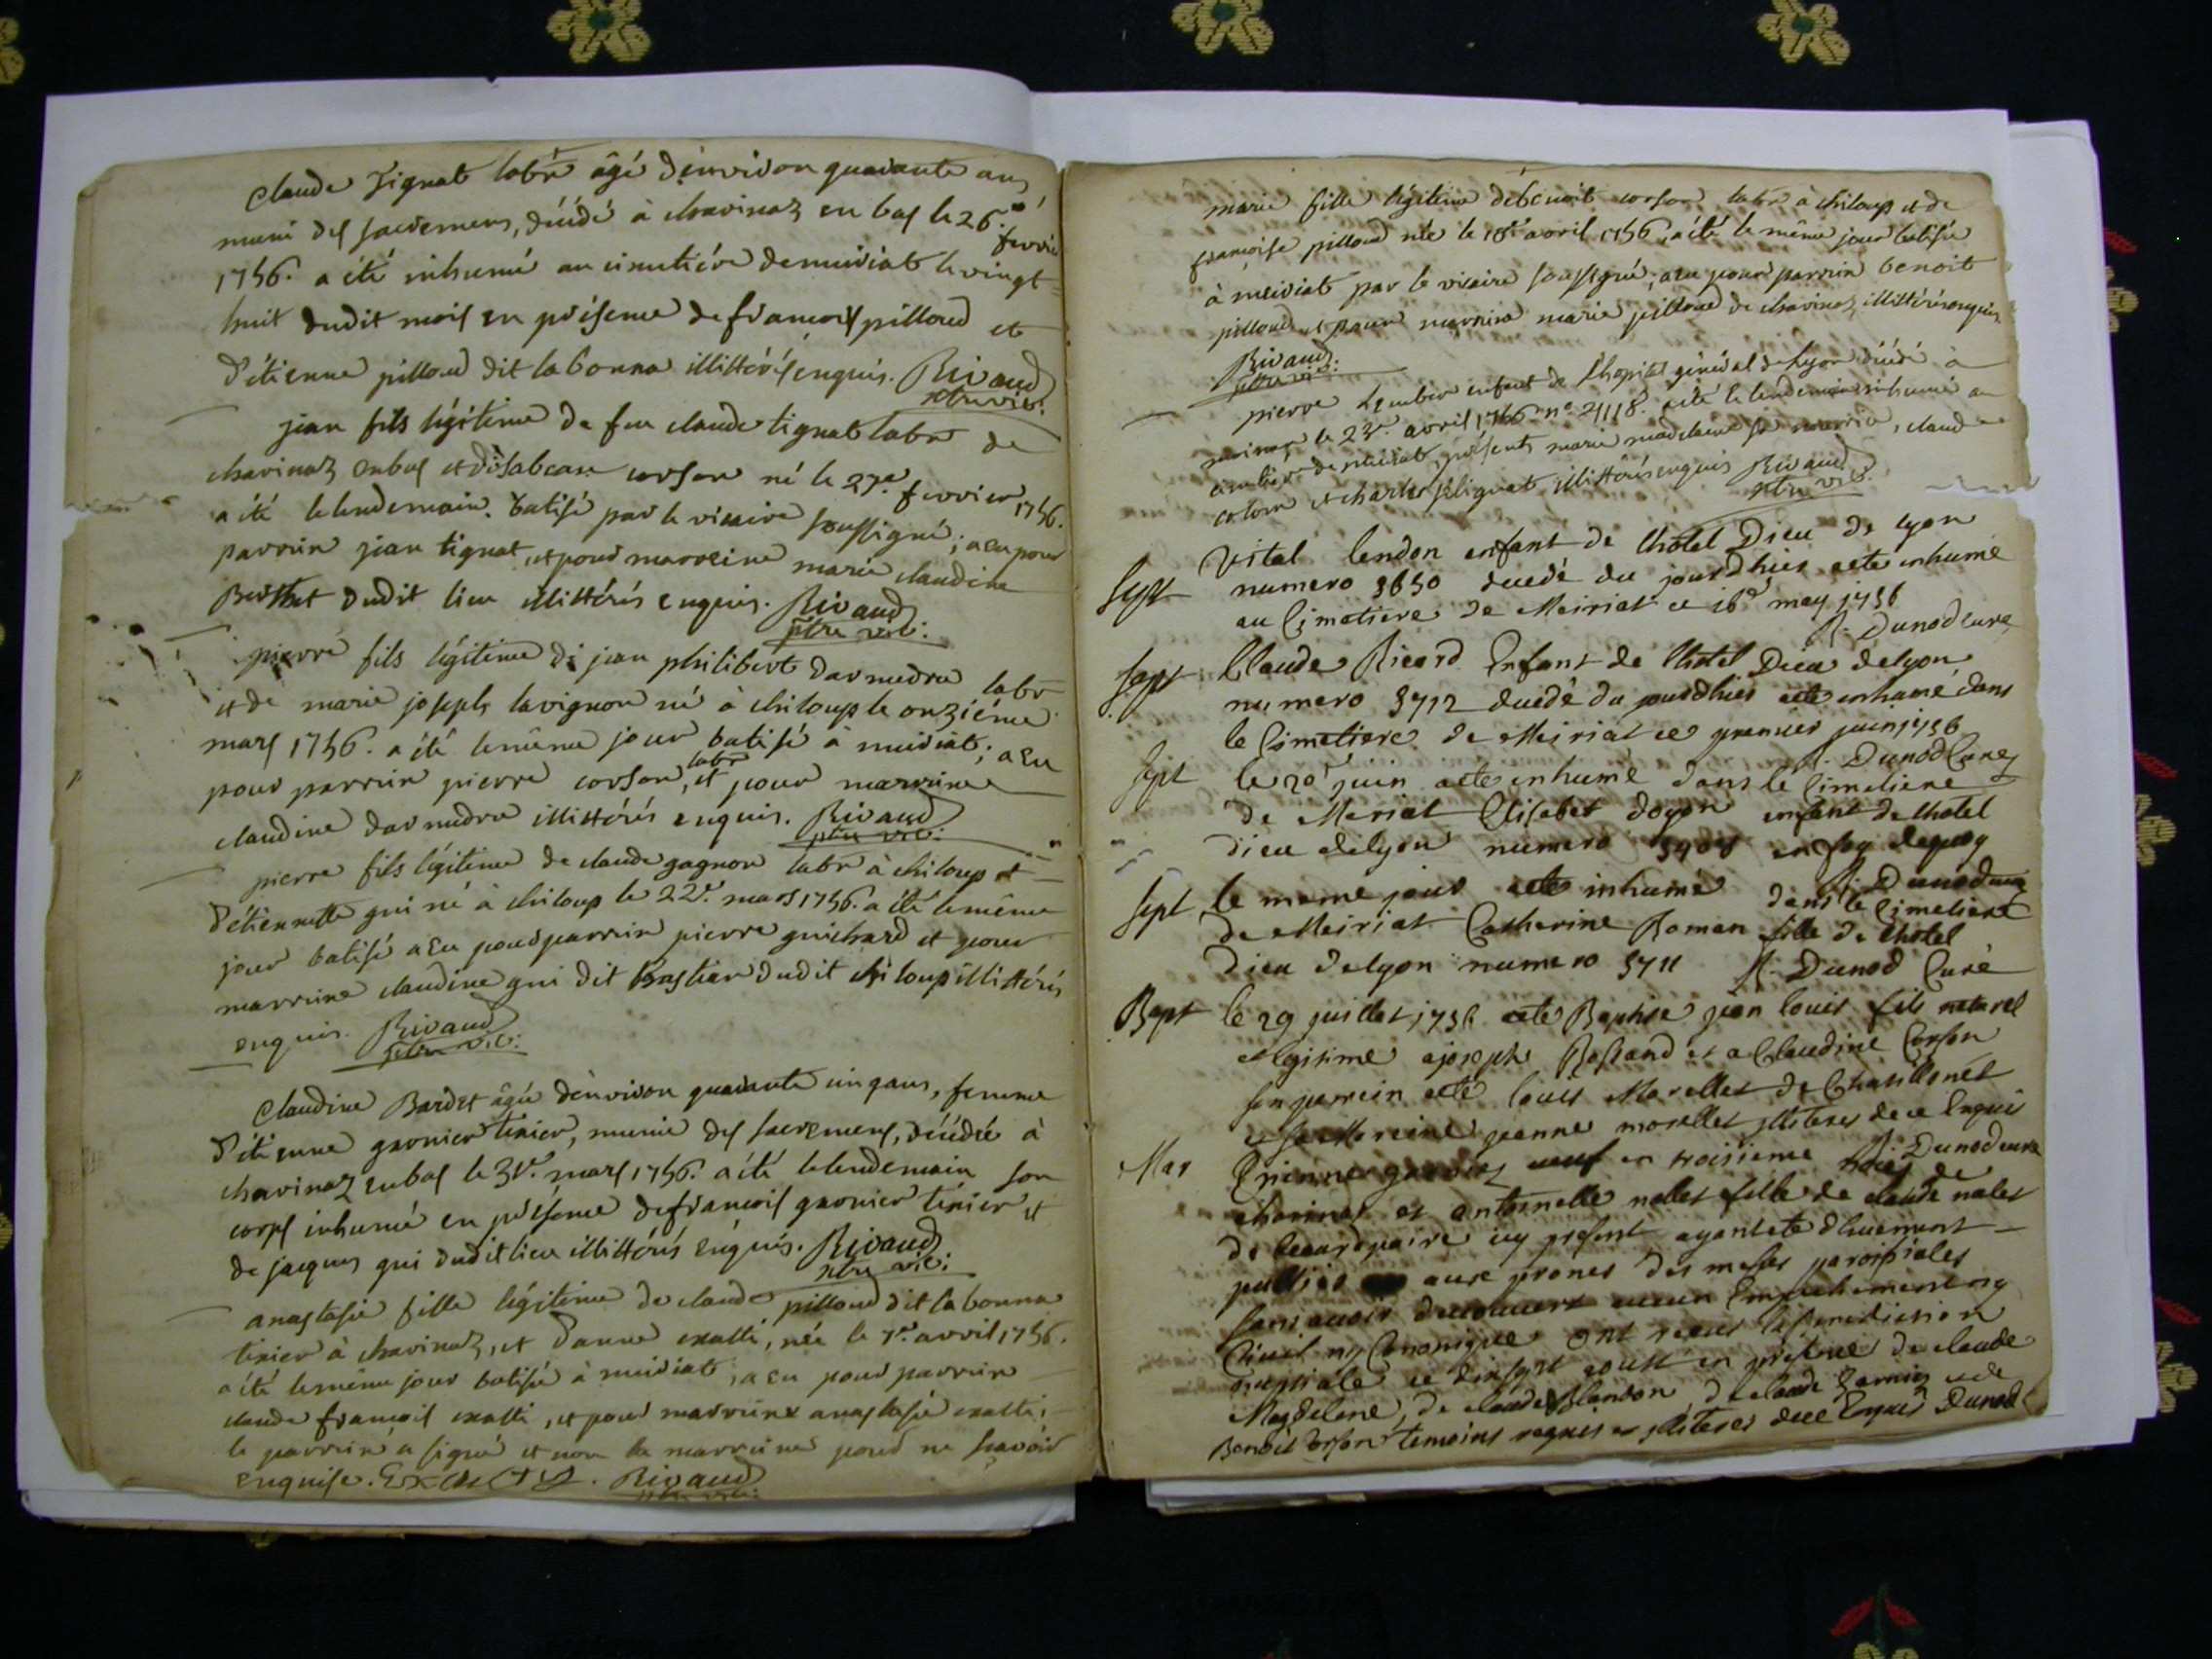 Claude Tignat labr âgé d'environ quarante ans,
muni des sacremens, décédé à chavinaz en bas le 26e fevrier
1756. a été inhumé au cimetiére de meiriat le vingt
huit dudit mois en présence de françois pilloud et
d'étienne pilloud dit la bonna illittérés enquis. Rivaud
ptre vic:
jean fils légitime de feu claude tignat labr de
chavinaz enbas et d'isabeau corson né le 27e fevrier 1756.
a été le lendemain batisé par le vicaire soussigné; a eu pour
parrin jean tignat, et pour marreine marie claudine
Berthet dudit lieu illittérés enquis. Rivaud
ptre vic:
pierre fils légitime de jean philibert darmedru labr
et de marie joseph lavignon né à chiloup le onziéme
mars 1756. a été le même jour batisé à meiriat; a eu
pour parrin pierre corson, labr et pour marrine
claudine darmedru illittérés enquis. Rivaud
ptre vic:
pierre fils légitime de claude gagnon labr à chiloup et
d'étiennette gui né à chiloup le 22e. mars 1756. a été le même
jour batisé a eu pour parrin pierre guichard et pour
marrine claudine gui dit Bastian dudit chiloup illittérés
enquis. Rivaud
ptre vic:
Claudine Bardet âgée d'environ quarante cinq ans, femme
d'étienne garnier tixier, munie des sacremens, décédée à
chavinaz enbas le 31e. mars 1756. a été le lendemain son
corps inhumé en présence de françois garnier tixier et
de jacques gui dudit lieu illittérés enquis. Rivaud
ptre vic:
anastasie fille légitime de claude pilloud dit la bonna
tixier à chavinaz, et d'anne exatti, née le 7e. avril 1756.
a été le même jour batisée à meiriat; a eu pour parrin
claude françois exatti, et pour marrine anastasie exatti;
le parrin a signé et non la marrine pour ne sçavoir
enquise. Rivaud
ptre vic:
marie fille légitime de benoit corson labr à chiloup et de
françoise pilloud née le 18e avril 1756, a été le même jour batisée
à meiriat par le vicaire soussigné; a eu pour parrin benoit
pilloud et pour marrine marie pilloud de chavinaz illittérés enquis
Rivaud
ptre vic:
pierre enfant de l'hopital général de Lyon décédé à
le 23e. avril 1756 no 21118. a été le lendemain inhumé au
cimetiére de meiriat, présents marie madelaine sa nourrice, claude
et charles illittérés enquis Rivaud
ptre vic:
Sept Vital lendon enfant de lhotel Dieu de lyon
numero 3650 decedé du jourdhier a eté inhumé
au Cimetiere de Meiriat ce 16e may 1756
Dunod curé
Sept Claude Ricard Enfant de lhotel Dieu de lyon
numero 3712 decedé du jourdhier a eté inhumé dans
le Cimetiere de Meiriat ce premier juin 1756
Dunod Curé
Sept le 20e juin a eté inhumé dans le Cimetiere
de Meriat Elisabet doyon enfant de lhotel
dieu de lyon numero en foy de quoy
Dunod curé
Sept le meme jour a eté inhumé dans le Cimetiere
de Meiriat Catherine Roman fille de lhotel
Dieu de lyon numero 3711 Dunod Curé
Bapt le 29 juillet 1756 a eté Baptisé jean louis fils naturel
et legitime a joseph et a Claudine Corson
son parrein a eté louis Morellet de Chatillonet
et sa Mareine jeanne morellet illiteres de ce Enquis
Dunod curé
Mar Etienne garnier veuf en troisieme noces de
chavinaz et antoinette nallet fille de claude nallet
de beaurepaire icy present ayant eté dhuement
publiés aux prones des messes paroissiales
sans avoir decouvert aucun Empechement ny
Civil ny Canonique ont receus la benediction
nuptiale ce dixsept aoust en présence de claude
Magdelene, de claude blandon de claude Garnier et de
Benoit Corson temoins requis et illiteres de ce Enquis Dunod